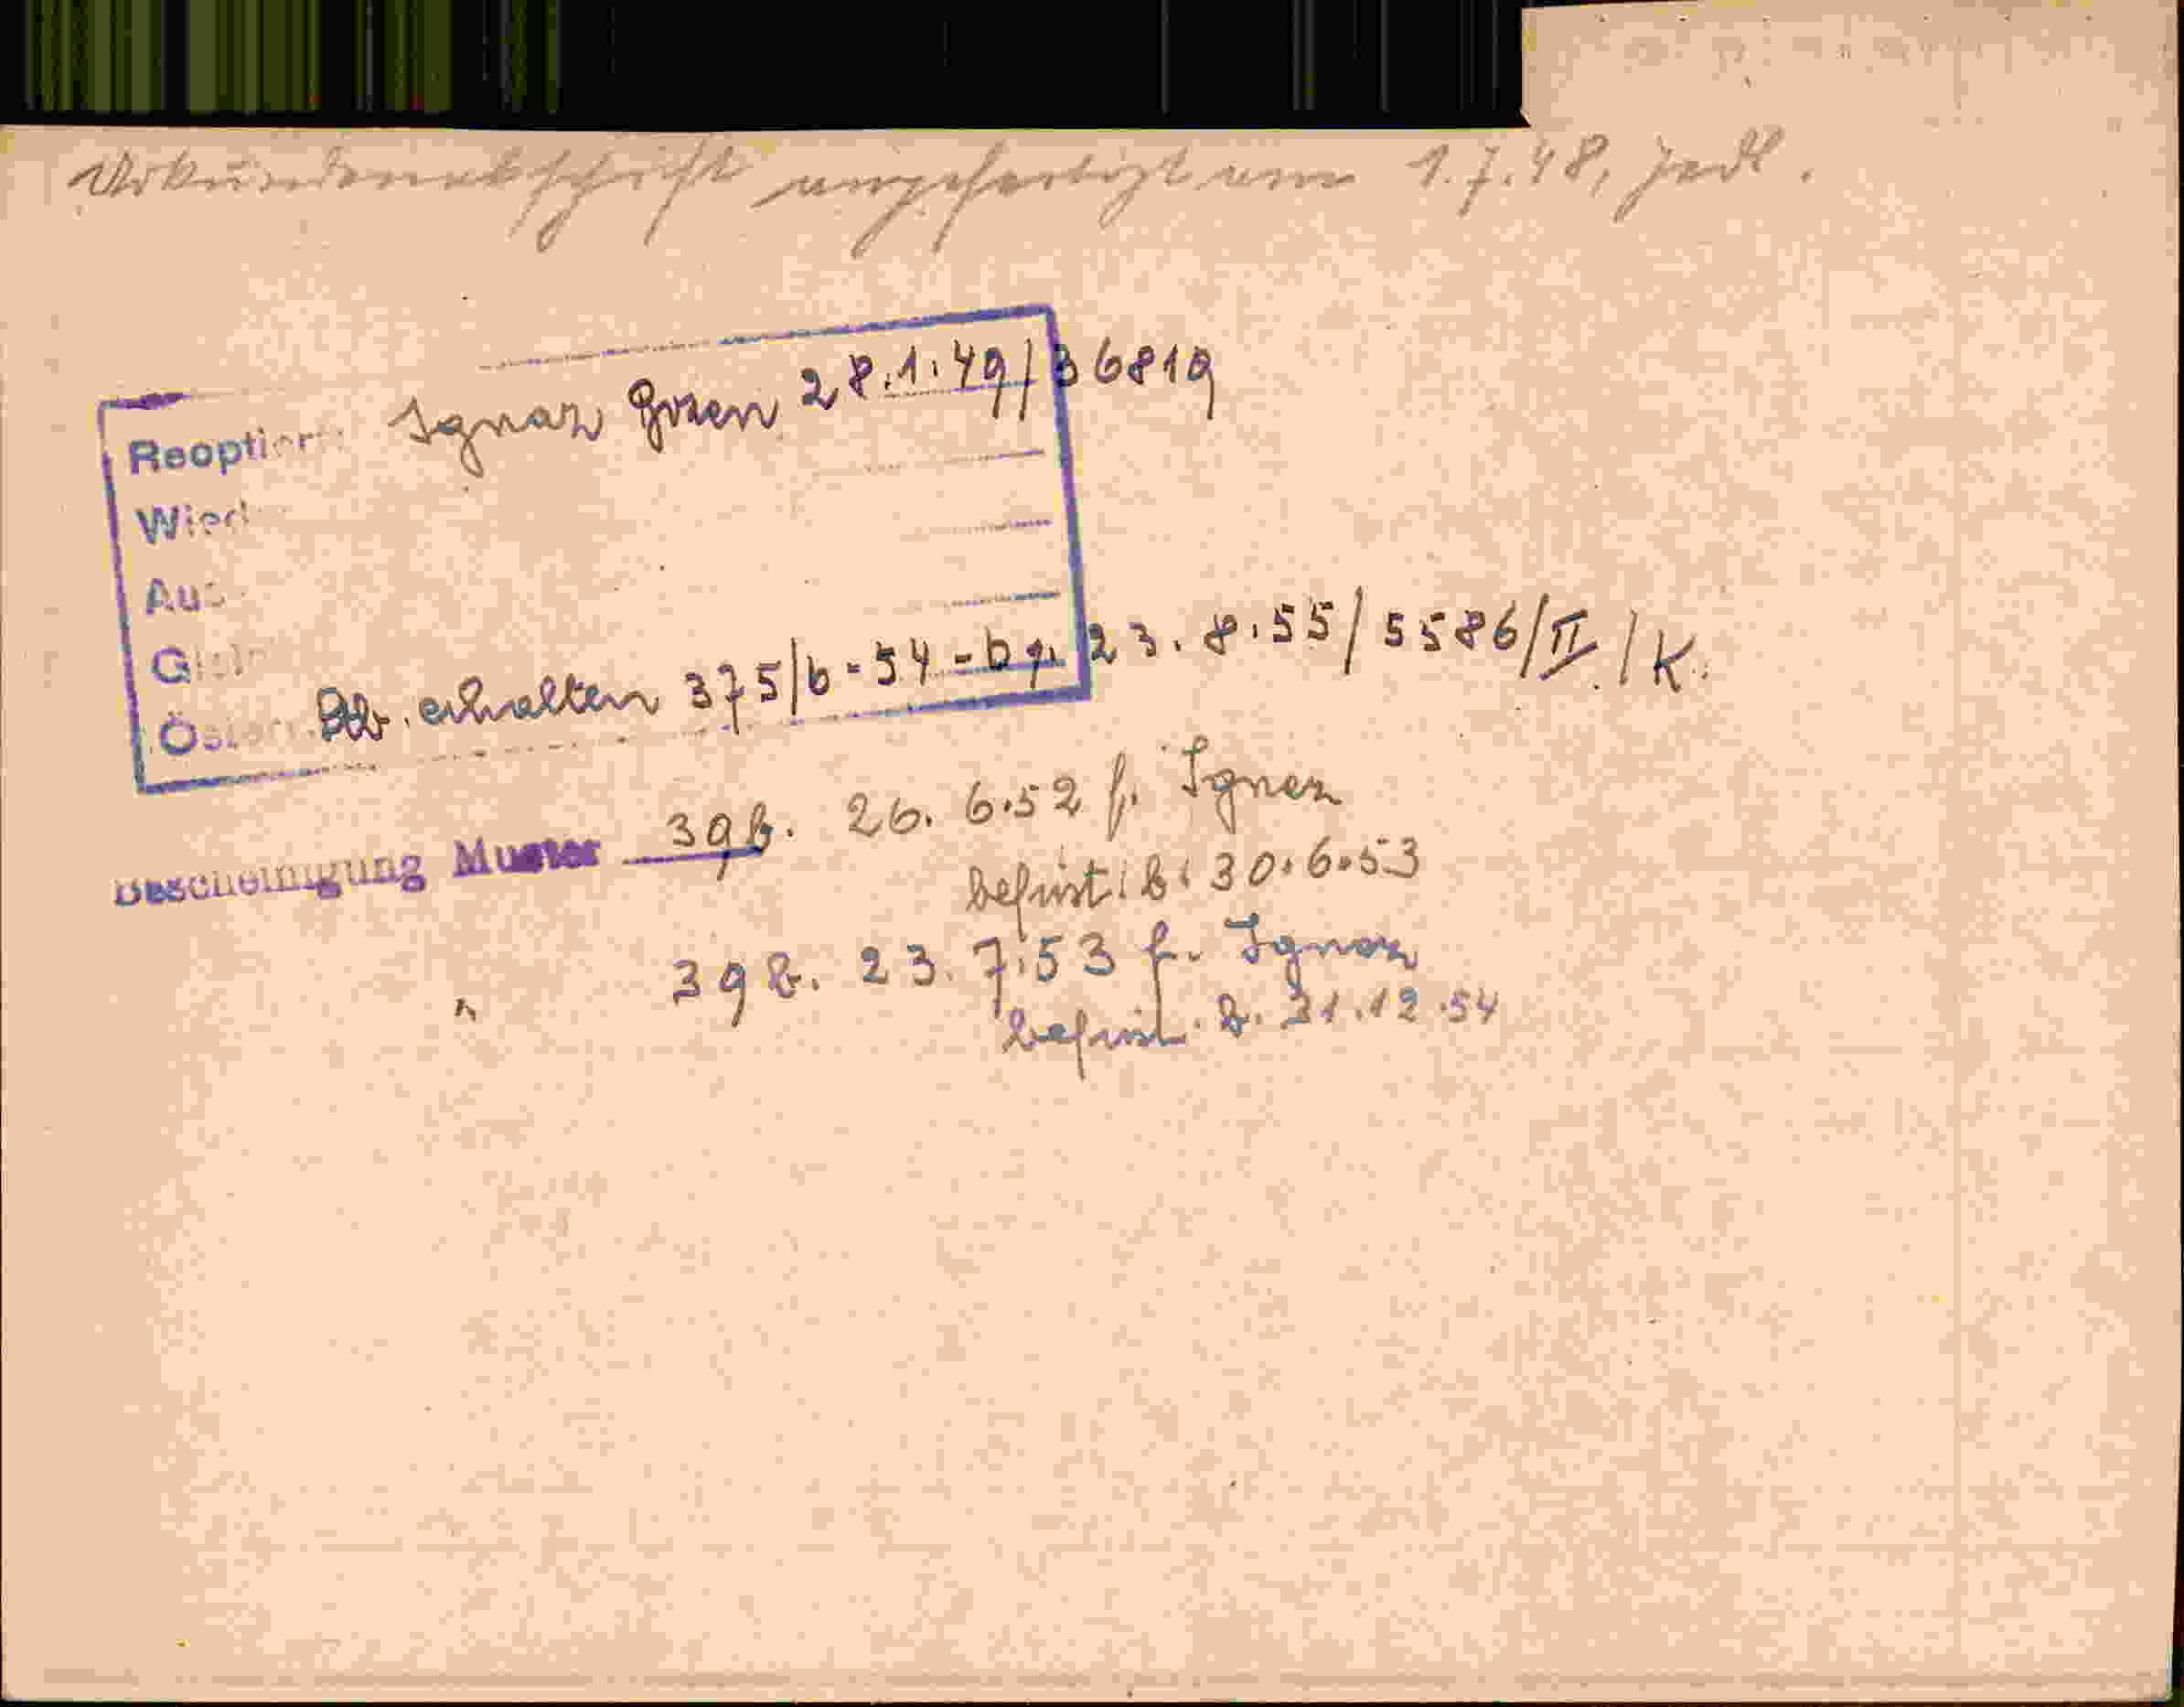 Urkundenabschrift ausgefertigt am 1.7.48, Jedl.
Reoption: Ignaz 28.1.49/36819
Wied
Aus
G
Öster erhalten 375/6-54-by. 23.8.55/5586/II/K.
Bescheinigung Muster 39b. 26.6.52 f. Ignaz
befrist. b. 30.6.53
" 39b. 23.7.53 f. Ignaz
befrist. b. 31.12.54